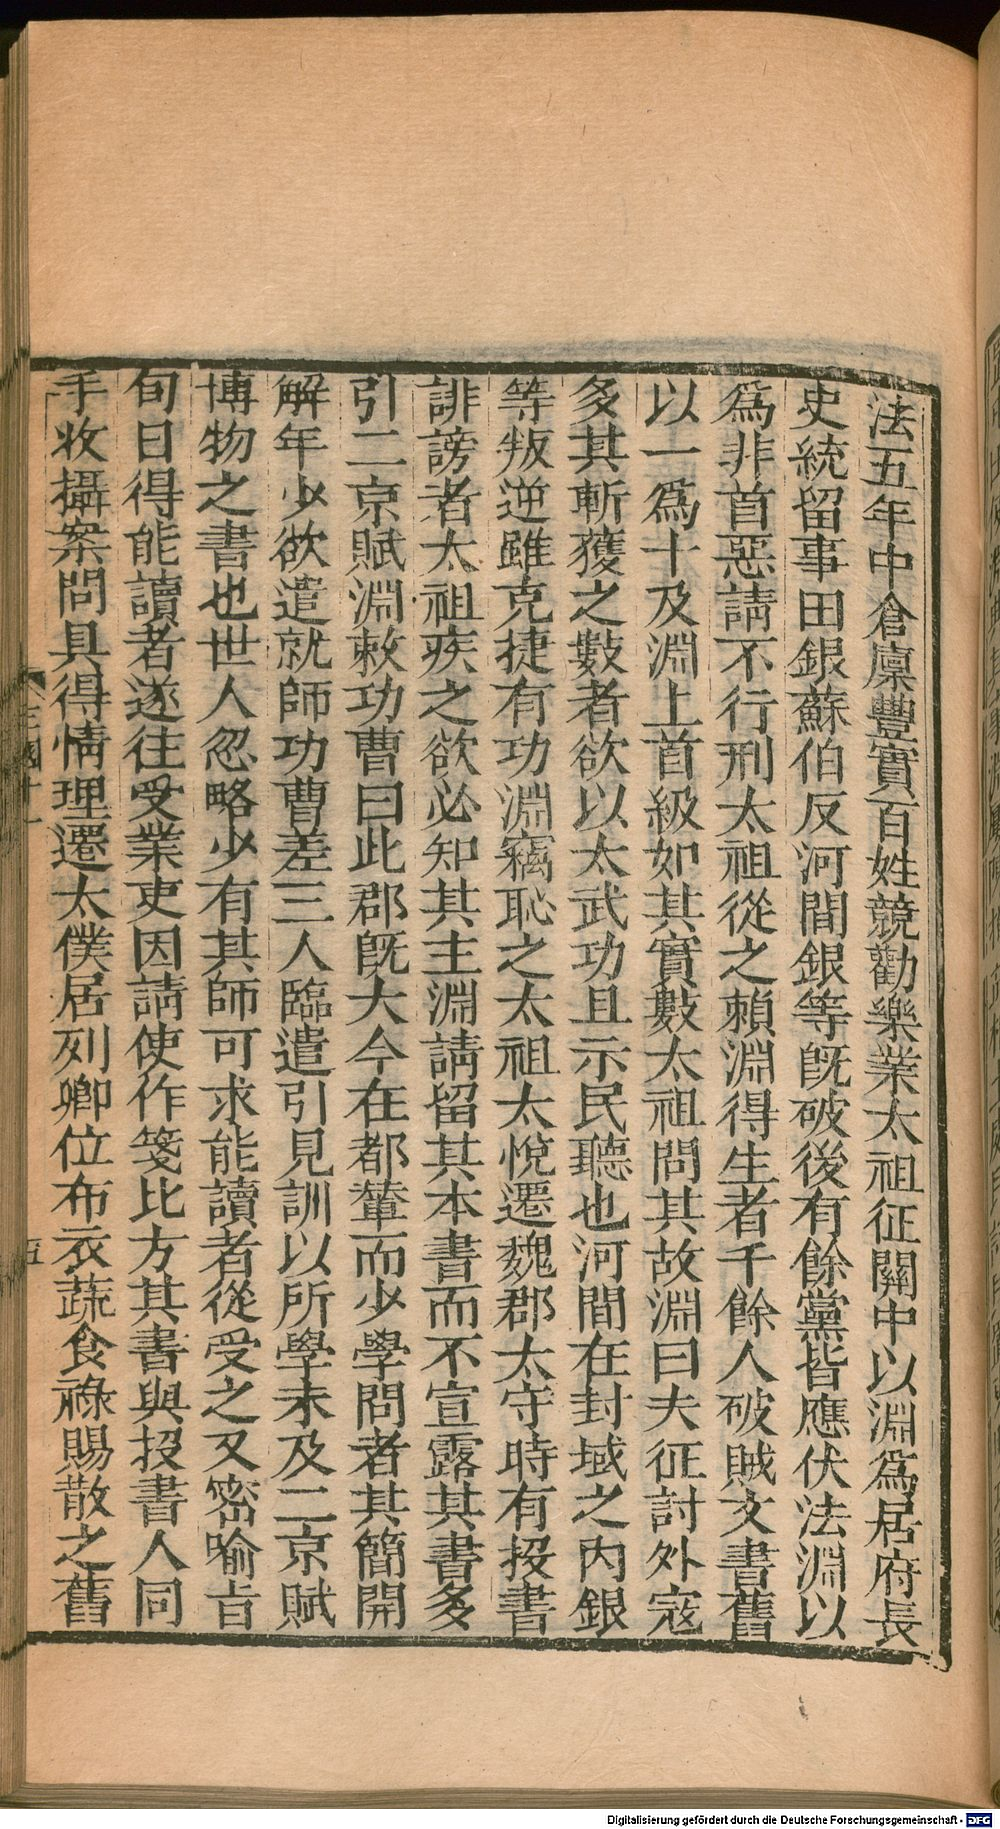 法五年中倉廩豐實百姓競勸樂業太祖征關中以淵爲居府長
史統留事田銀蘇伯反河間銀等旣破後有餘黨皆應伏法淵以
爲非首惡請不行刑太祖從之賴淵得生者千餘人破賊文書舊
以一爲十及淵上首級如其實數太祖問其故淵曰夫征討外寇
多其斬獲之數者欲以大武功且示民聽也河間在封域之內銀
等叛逆雖克捷有功淵竊恥之太祖大悅遷魏郡太守時有投書
誹謗者太祖疾之欲必知其主淵請留其本書而不宣露其書多
引二京賦淵敕功曹曰此郡旣大今在都輦而少學問者其簡開
解年少欲遣就師功曹差三人臨遣引見訓以所學未及二京賦
博物之書也世人忽略少有其師可求能讀者從受之又密喻旨
旬日得能讀者遂往受業吏因請使作箋比方其書與投書人同
手收攝案問具得情理遷太僕居列卿位布衣蔬食祿賜散之舊
三國十一
五
Digitalisierung gefördert durch die Deutsche Forschungsgemeinschaft - DFG